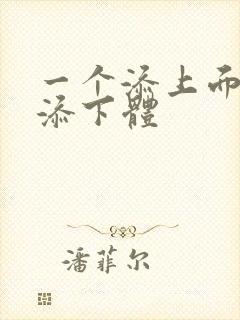 一个添上而
添下體
潘菲尔